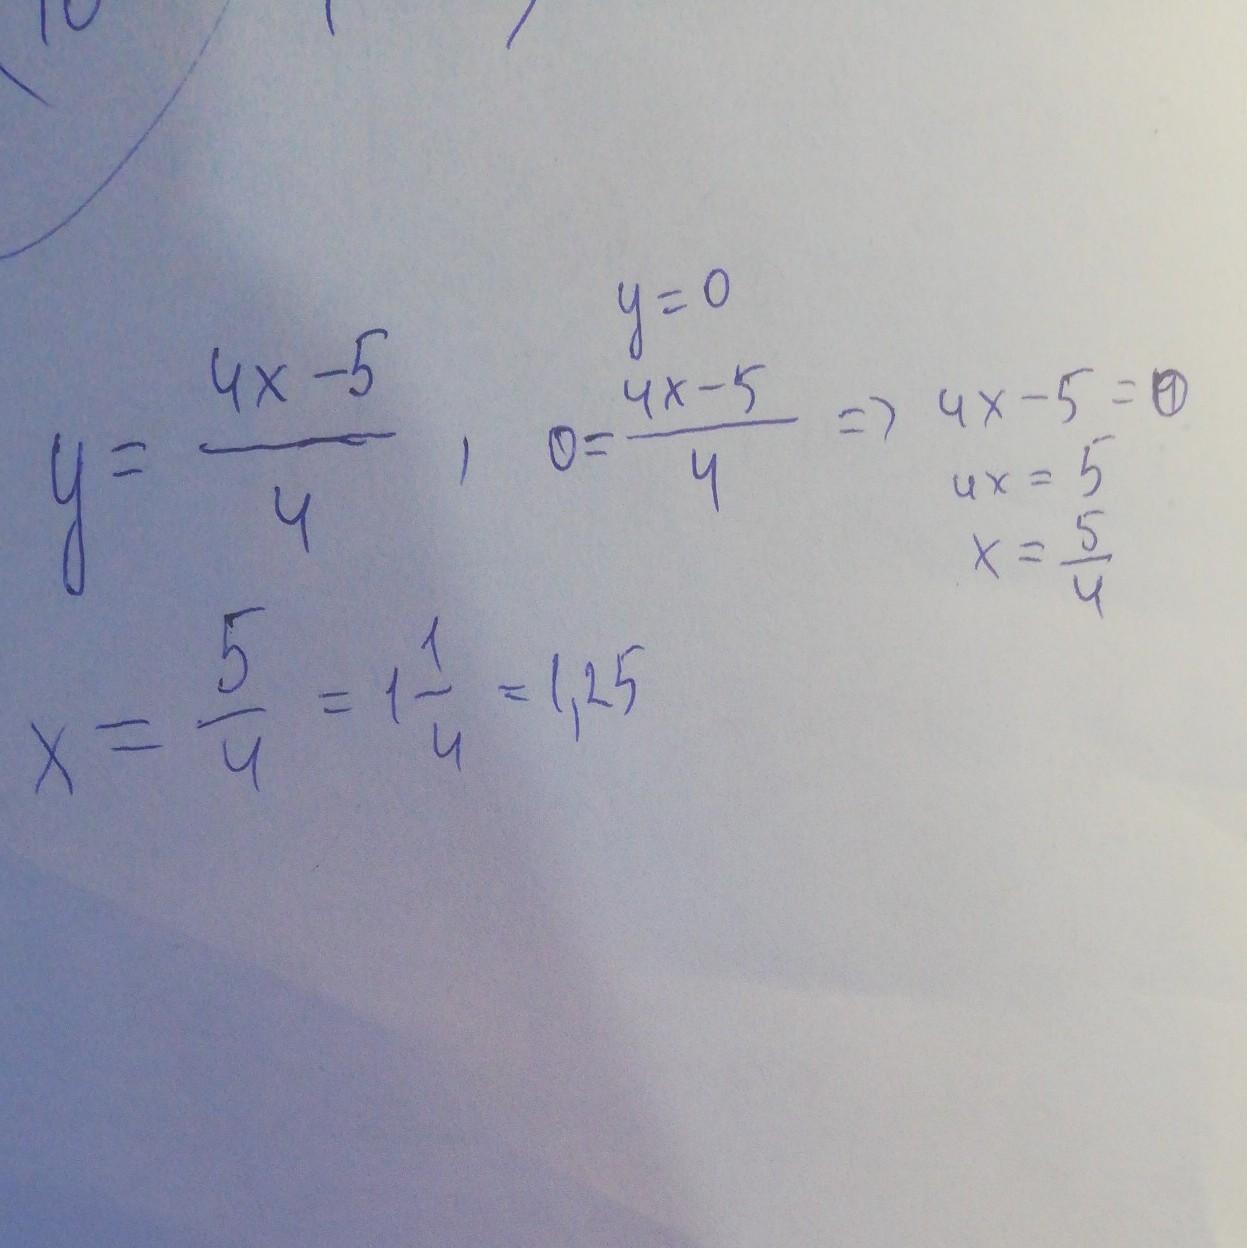 y=0
y = (4x-5)/4 , 0 = (4x-5)/4 => 4x-5=0
4x=5
x = 5/4
x = 5/4 = 1 1/4 = 1,25